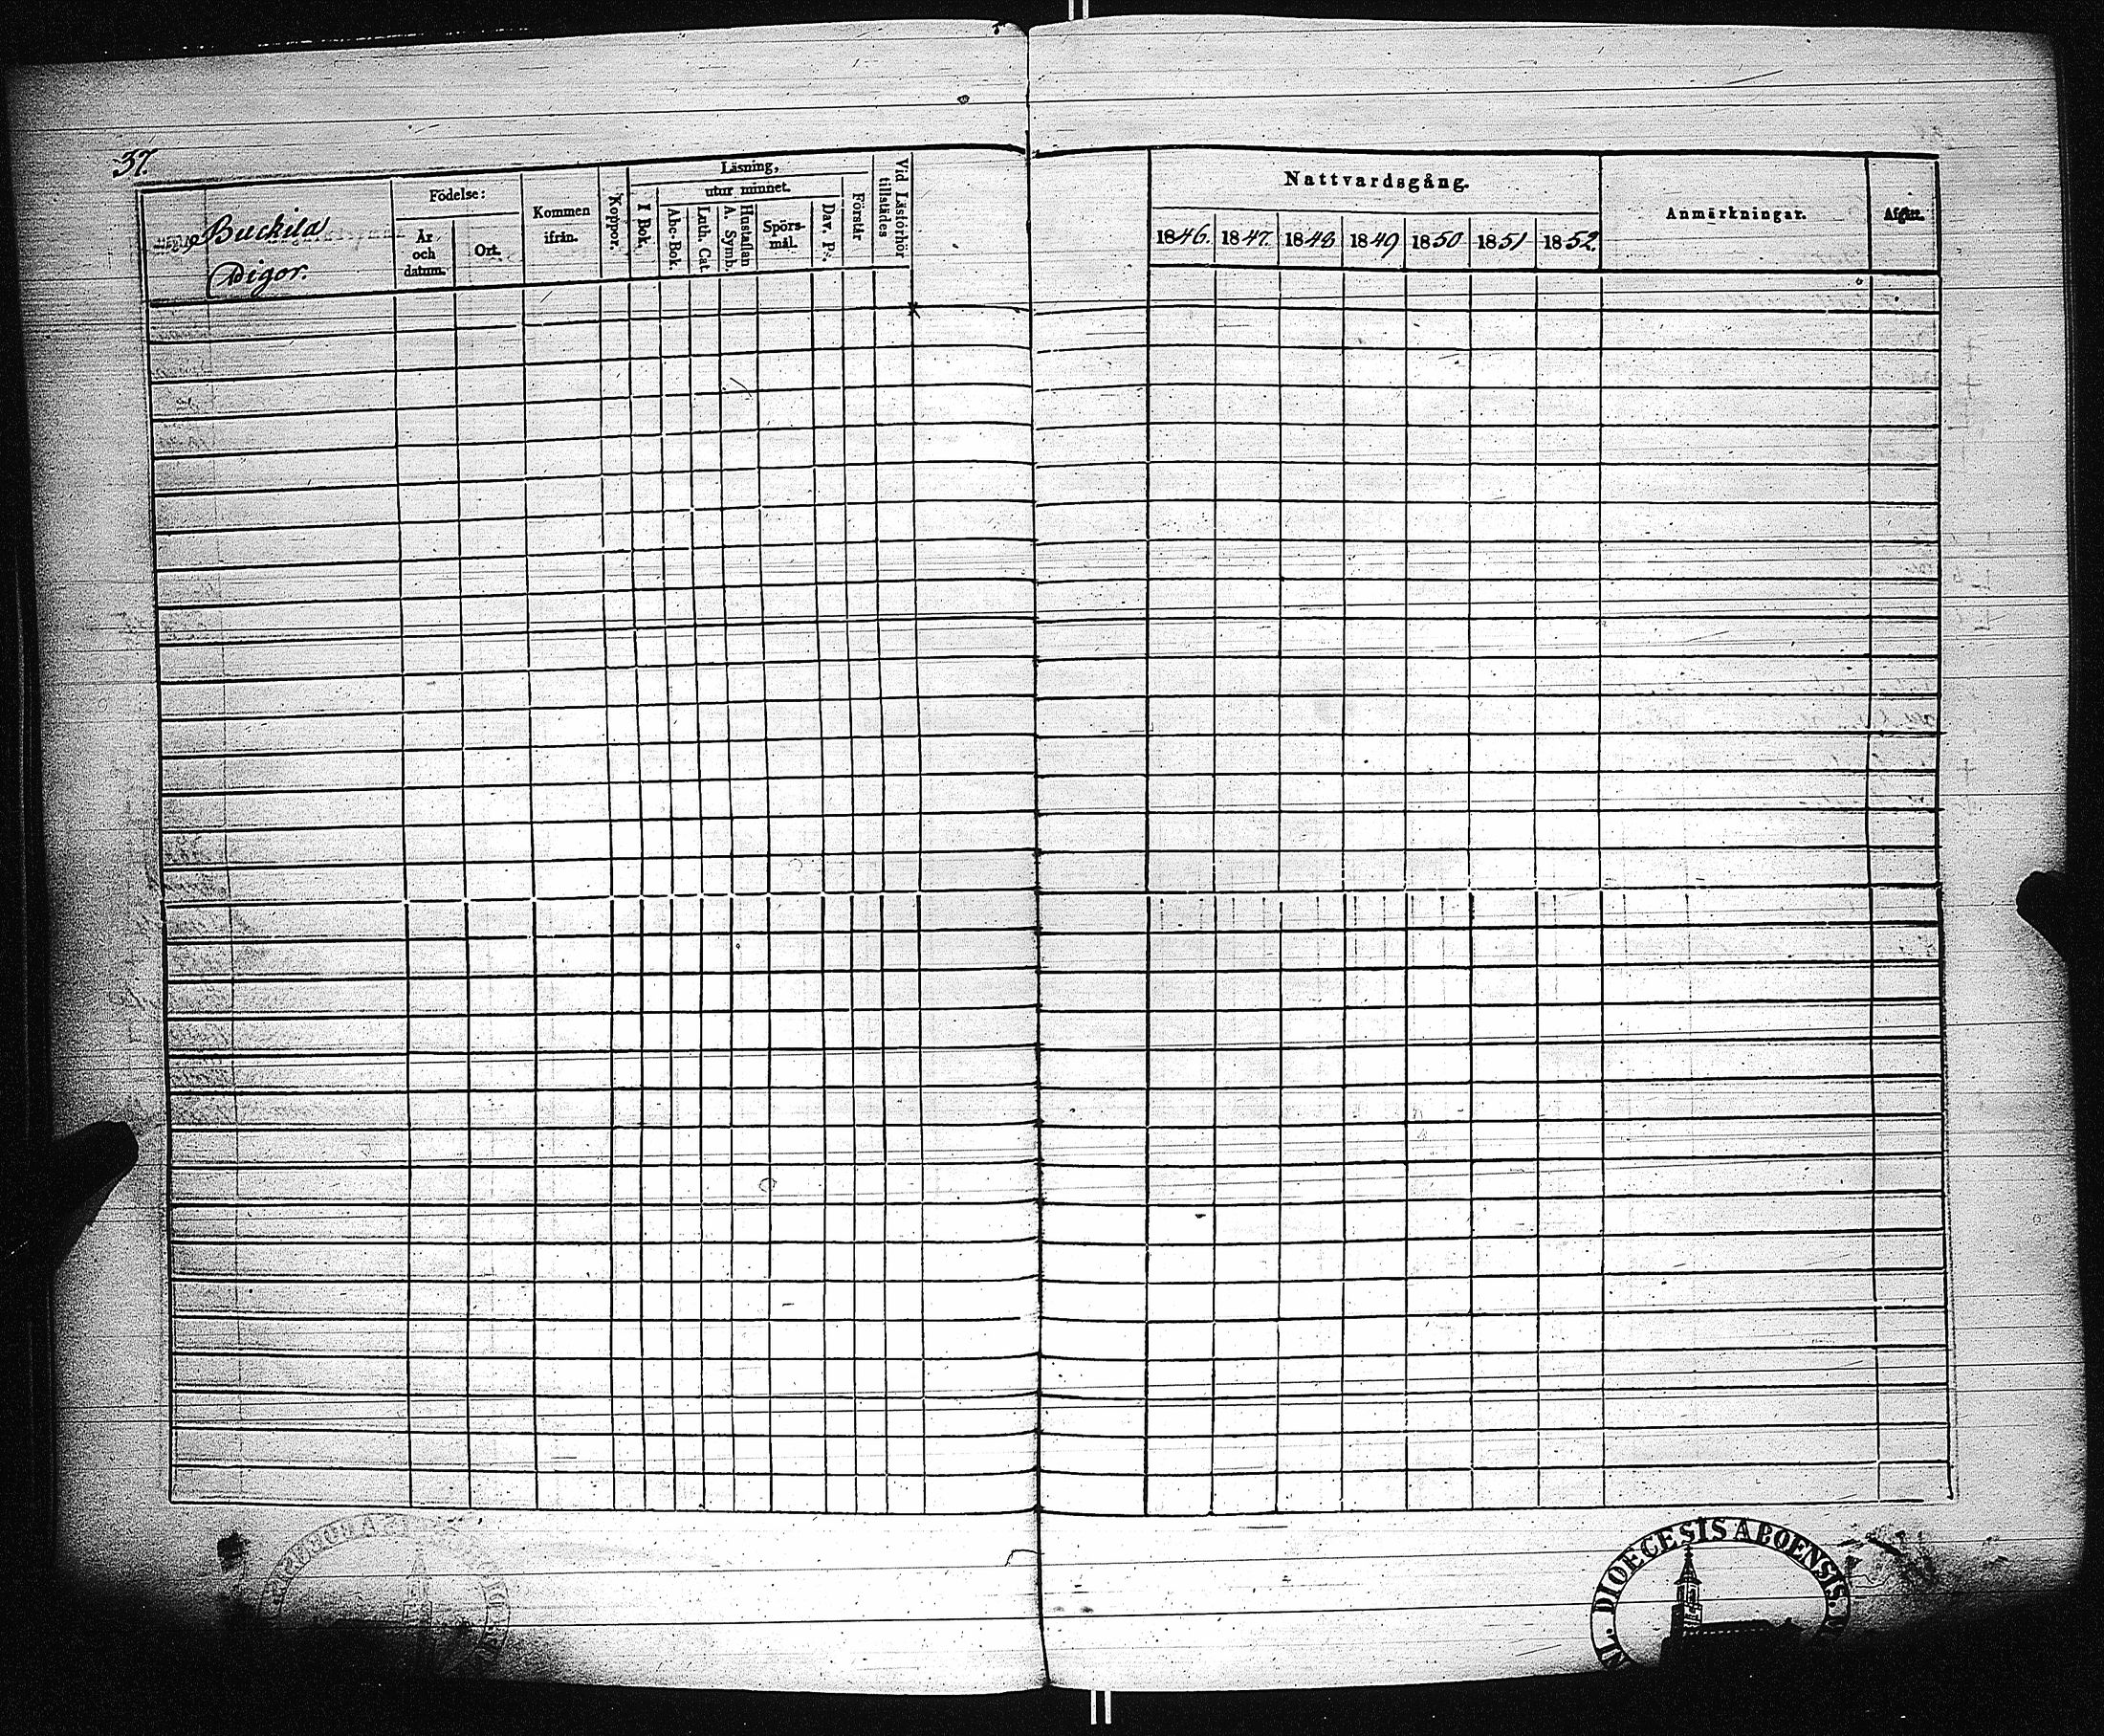 37.
Buckila
Digor.
Födelse:
År
och
datum.
Ort.
Kommen
ifrån.
Koppor.
Läsning,
I Bok.
utur minnet.
Abc-Bok
Luth. Cat.
Hustaflan
A. Symb.
Spörs-
mål.
Dav. Ps.
Förstår
Vid Läsförhör
tillstädes
Nattvardsgång.
1846.
1847.
1848
1849
1850
1851
1852.
Anmärkningar.
Afgått.
DIOECESIS ABOENSIS.